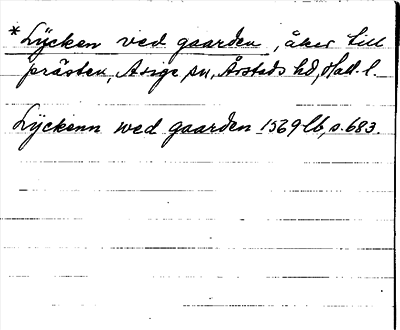 *Lÿcken ved gaarden, åker till
prästen, Asige sn, Årstads hd, Hall. l.
Lÿckenn wed gaarden 1569 lb, s. 683.